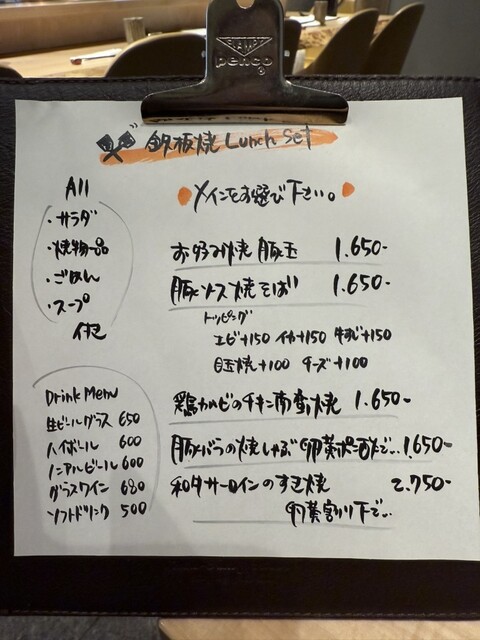 PLAMPY
penco
鉄板焼 Lunch Set
メインをお選び下さい。
All
・サラダ
・焼物一品
・ごはん
・スープ
付き
お好み焼 豚玉 1.650-
豚ソース焼そば 1.650-
トッピング
エビ+150 イカ+150 牛すじ+150
目玉焼+100 チーズ+100
鶏カルビのチキン南蛮焼 1.650-
豚バラの焼しゃぶ 卵黄ポン酢で… 1.650-
和牛サーロインのすき焼 2.750-
卵黄割り下で…
Drink Menu
生ビールグラス 650
ハイボール 600
ノンアルビール 600
グラスワイン 680
ソフトドリンク 500